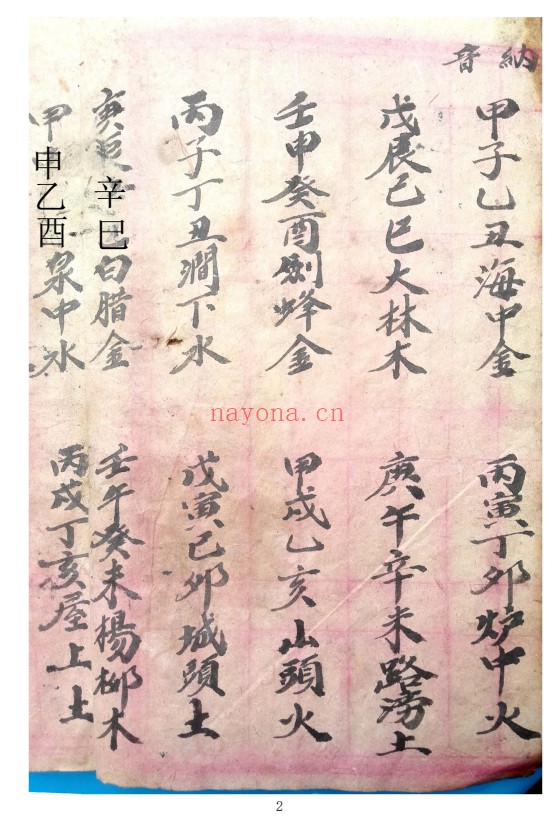 納音
甲子乙丑海中金
丙寅丁卯炉中火
戊辰己巳大林木
庚午辛未路滂土
壬申癸酉劍峰金
甲戌乙亥山頭火
丙子丁丑澗下水
戊寅己卯城頭土
庚辰辛巳白腊金
壬午癸未楊柳木
甲申乙酉泉中水
丙戌丁亥屋上土
nayona.cn
2